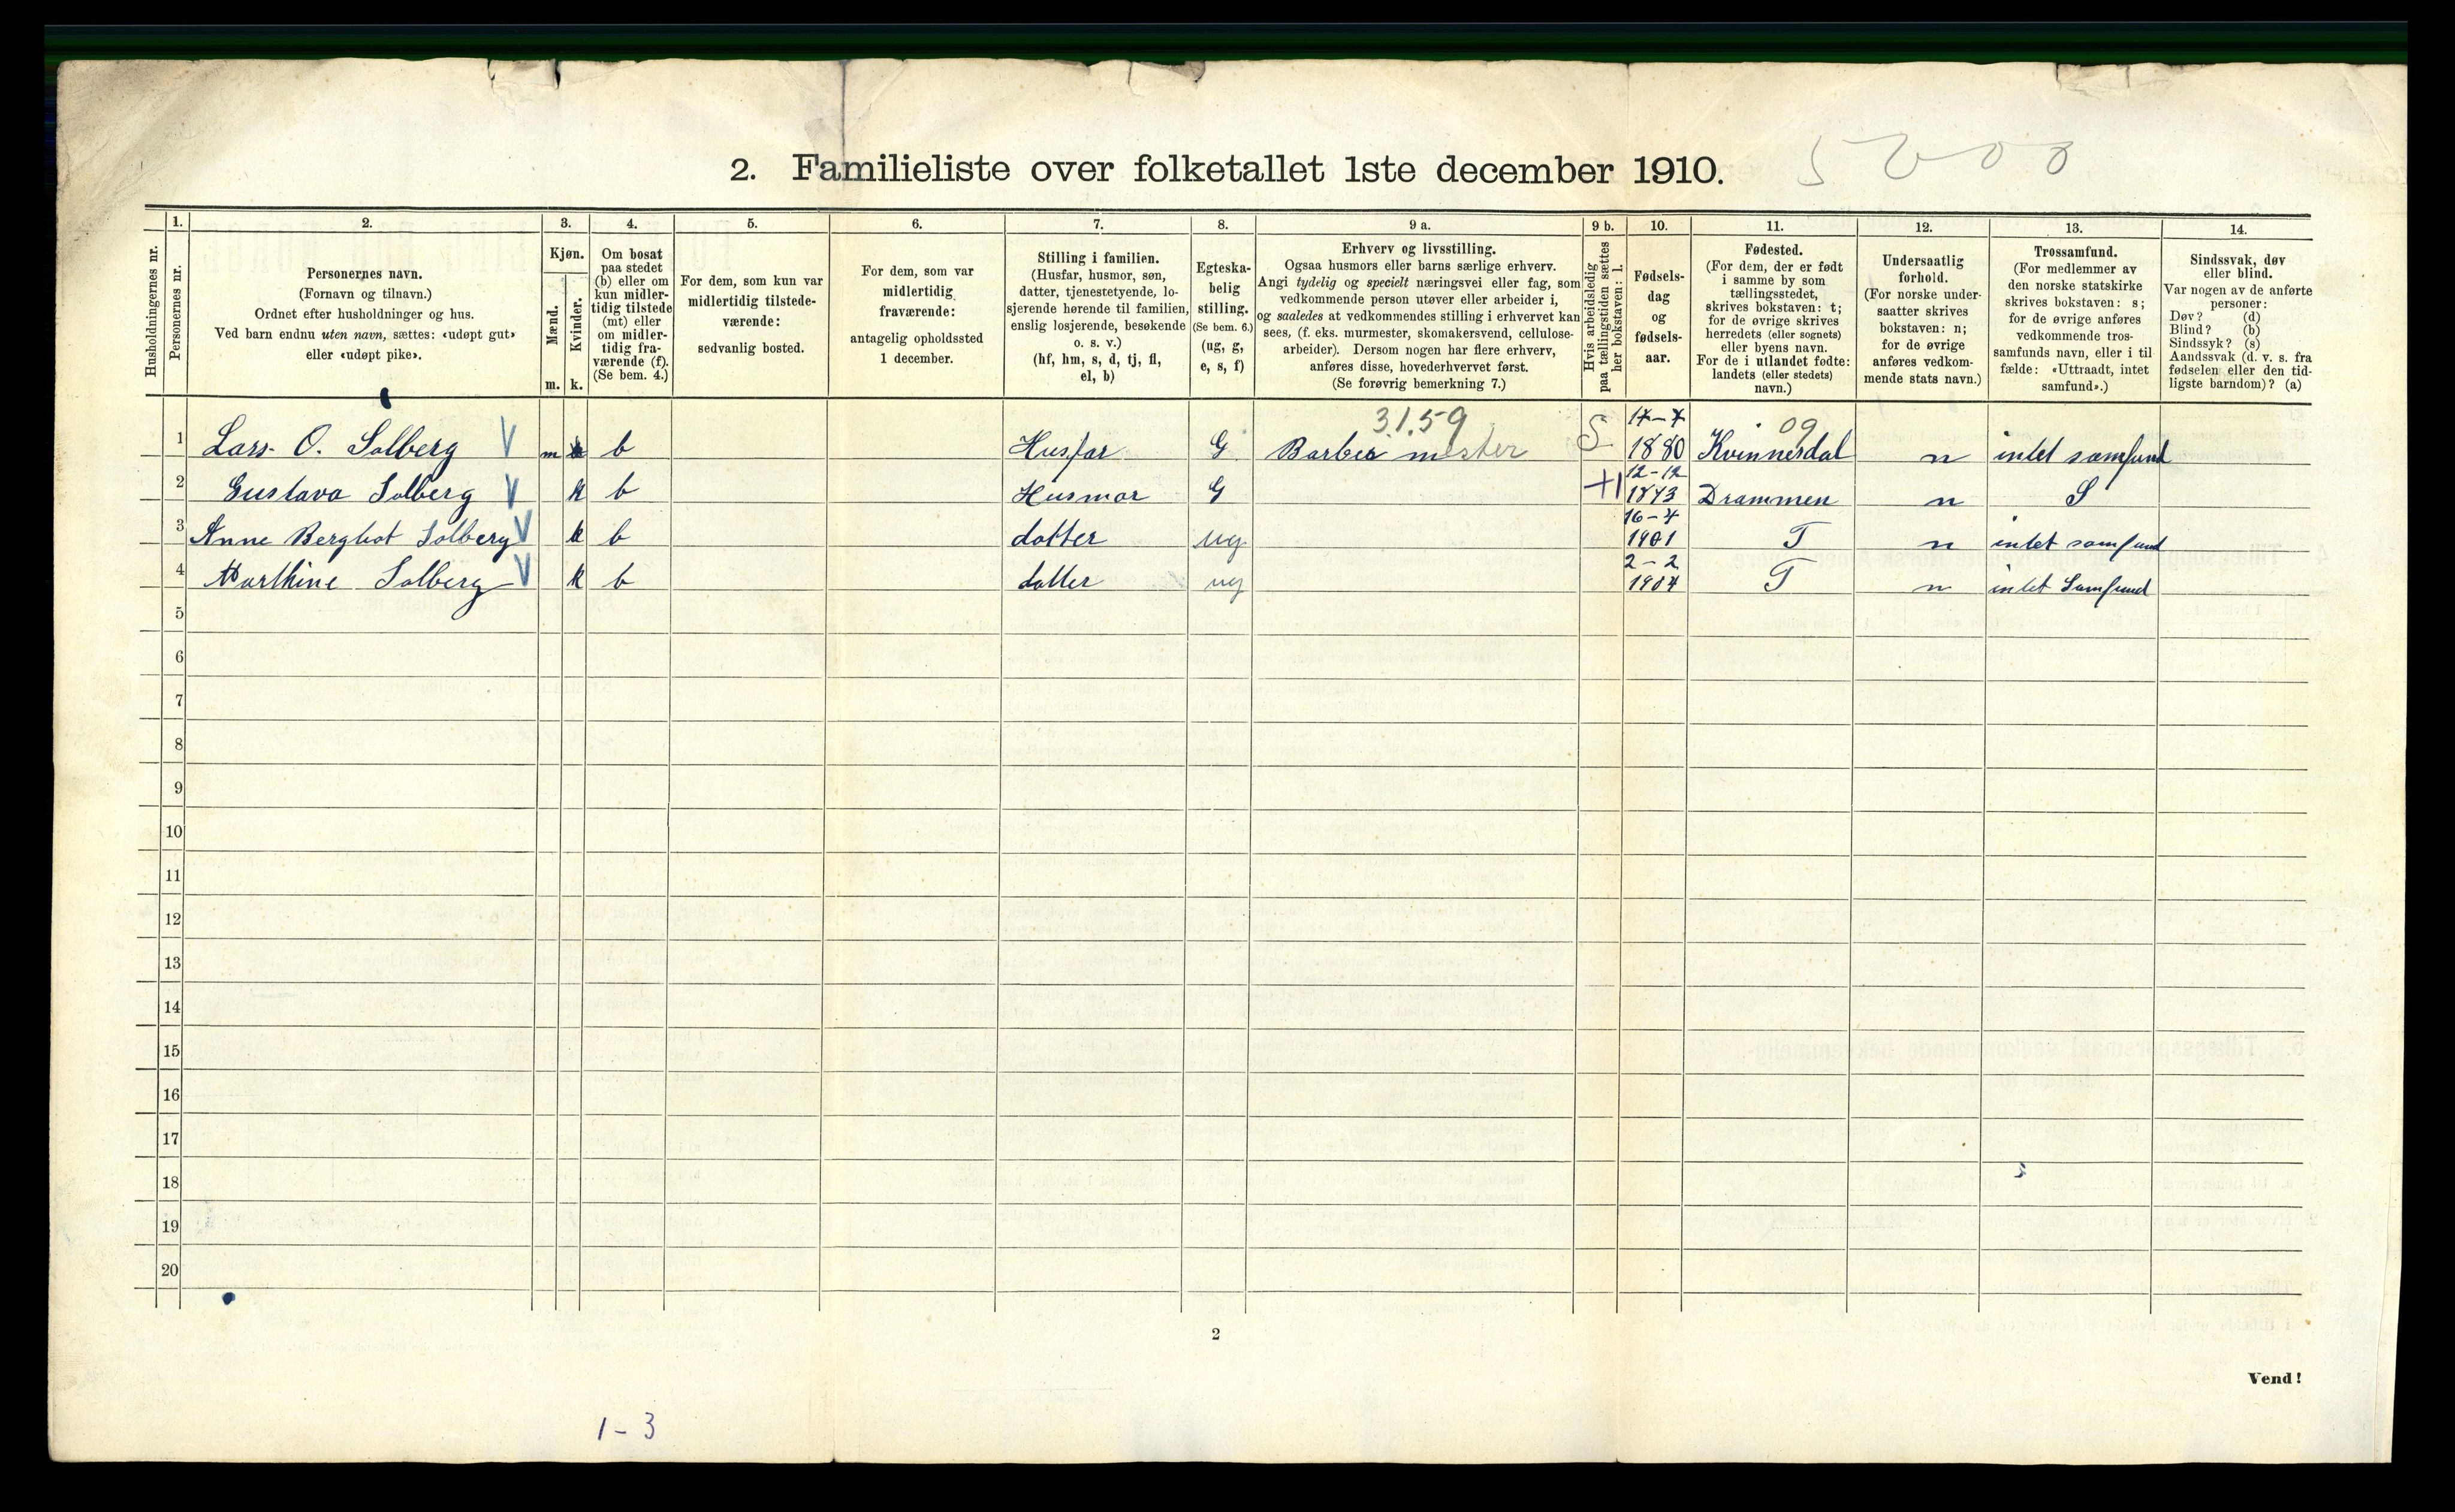 2. Familieliste over folketallet 1ste december 1910.
5200
Husholdningernes nr.
1.
Personernes nr.
2.
Personernes navn.
(Fornavn og tilnavn.)
Ordnet efter husholdninger og hus.
Ved barn endnu uten navn, sættes: «udøpt gut»
eller «udøpt pike».
3.
Kjøn.
Mænd.
Kvinder.
m. k.
4.
Om bosat
paa stedet
(b) eller om
kun midler-
tidig tilstede
(mt) eller
om midler-
tidig fra-
værende (f).
(Se bem. 4.)
5.
For dem, som kun var
midlertidig tilstede-
værende:
sedvanlig bosted.
6.
For dem, som var
midlertidig
fraværende:
antagelig opholdssted
1 december.
7.
Stilling i familien.
(Husfar, husmor, søn,
datter, tjenestetyende, lo-
sjerende hørende til familien,
enslig losjerende, besøkende
o. s. v.)
(hf, hm, s, d, tj, fl,
el, b)
8.
Egteska-
belig
stilling.
(Se bem. 6.)
(ug, g,
e, s, f)
9 a.
Erhverv og livsstilling.
Ogsaa husmors eller barns særlige erhverv.
Angi tydelig og specielt næringsvei eller fag, som
vedkommende person utøver eller arbeider i,
og saaledes at vedkommendes stilling i erhvervet kan
sees, (f. eks. murmester, skomakersvend, cellulose-
arbeider). Dersom nogen har flere erhverv,
anføres disse, hovederhvervet først.
(Se forøvrig bemerkning 7.)
9 b.
Hvis arbeidsledig
paa tællingstiden sættes
her bokstaven: l.
10.
Fødsels-
dag
og
fødsels-
aar.
11.
Fødested.
(For dem, der er født
i samme by som
tællingsstedet,
skrives bokstaven: t;
for de øvrige skrives
herredets (eller sognets)
eller byens navn.
For de i utlandet fødte:
landets (eller stedets)
navn.)
12.
Undersaatlig
forhold.
(For norske under-
saatter skrives
bokstaven: n;
for de øvrige
anføres vedkom-
mende stats navn.)
13.
Trossamfund.
(For medlemmer av
den norske statskirke
skrives bokstaven: s;
for de øvrige anføres
vedkommende tros-
samfunds navn, eller i til
fælde: «Uttraadt, intet
samfund».)
14.
Sindssvak, døv
eller blind.
Var nogen av de anførte
personer:
Døv? (d)
Blind? (b)
Sindssyk? (s)
Aandssvak (d. v. s. fra
fødselen eller den tid-
ligste barndom)? (a)
3.1.59 09
1 Lars O. Solberg V m b Husfar G Barber mester S 1880 Kvinnesdal n intet samfund
12-12
2 Gustava Solberg V k b Husmor G 1873 Drammen n S
16-4
3 Anne Bergliot Solberg V k b datter ug 1901 T n intet samfund
2-2
4 Marthine Solberg V k b datter ug 1904 T n intet Samfund
5
6
7
8
9
10
11
12
13
14
15
16
17
18
19
20
2
Vend!
1-3